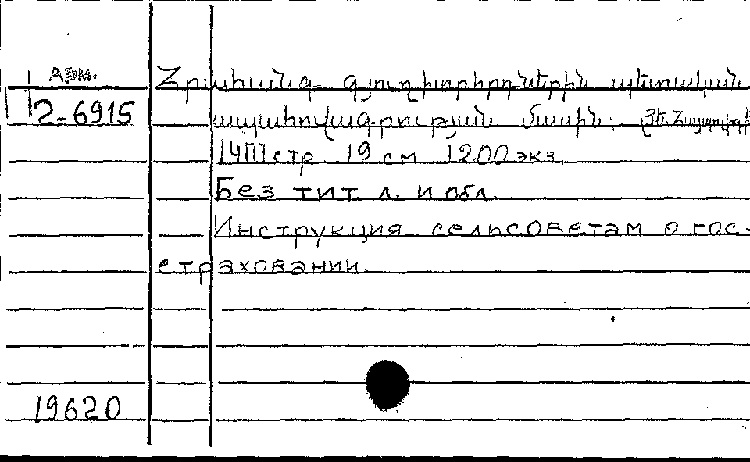 Арм.
2-6915
Հրահանգ գյուղխորհրդներին պետական
ապահովագրության մասին.
14 стр. 19 см 1200 экз.
Без тит. л. и обл.
Инструкция сельсоветам о гос-
страховании.
19620